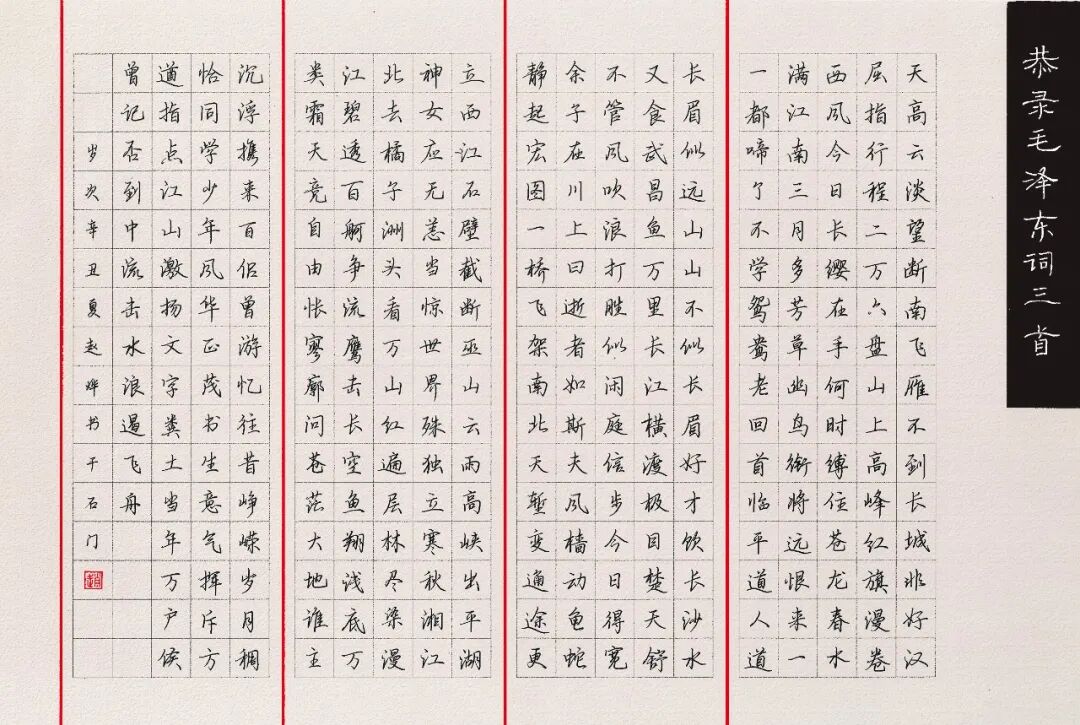 恭录毛泽东词三首
天高云淡望断南飞雁不到长城非好汉
屈指行程二万六盘山上高峰红旗漫卷
西风今日长缨在手何时缚住苍龙春水
满江南三月多芳草幽鸟衔将远恨来一
一都啼了不学鸳鸯老回首临平道人道
长眉似远山山不似长眉好才饮长沙水
又食武昌鱼万里长江横渡极目楚天舒
不管风吹浪打胜似闲庭信步今日得宽
余子在川上曰逝者如斯夫风樯动龟蛇
静起宏图一桥飞架南北天堑变通途更
立西江石壁截断巫山云雨高峡出平湖
神女应无恙当惊世界殊独立寒秋湘江
北去橘子洲头看万山红遍层林尽染漫
江碧透百舸争流鹰击长空鱼翔浅底万
类霜天竞自由怅寥廓问苍茫大地谁主
沉浮携来百侣曾游忆往昔峥嵘岁月稠
恰同学少年风华正茂书生意气挥斥方
遒指点江山激扬文字粪土当年万户侯
曾记否到中流击水浪遏飞舟
岁次辛丑夏赵烨书于石门